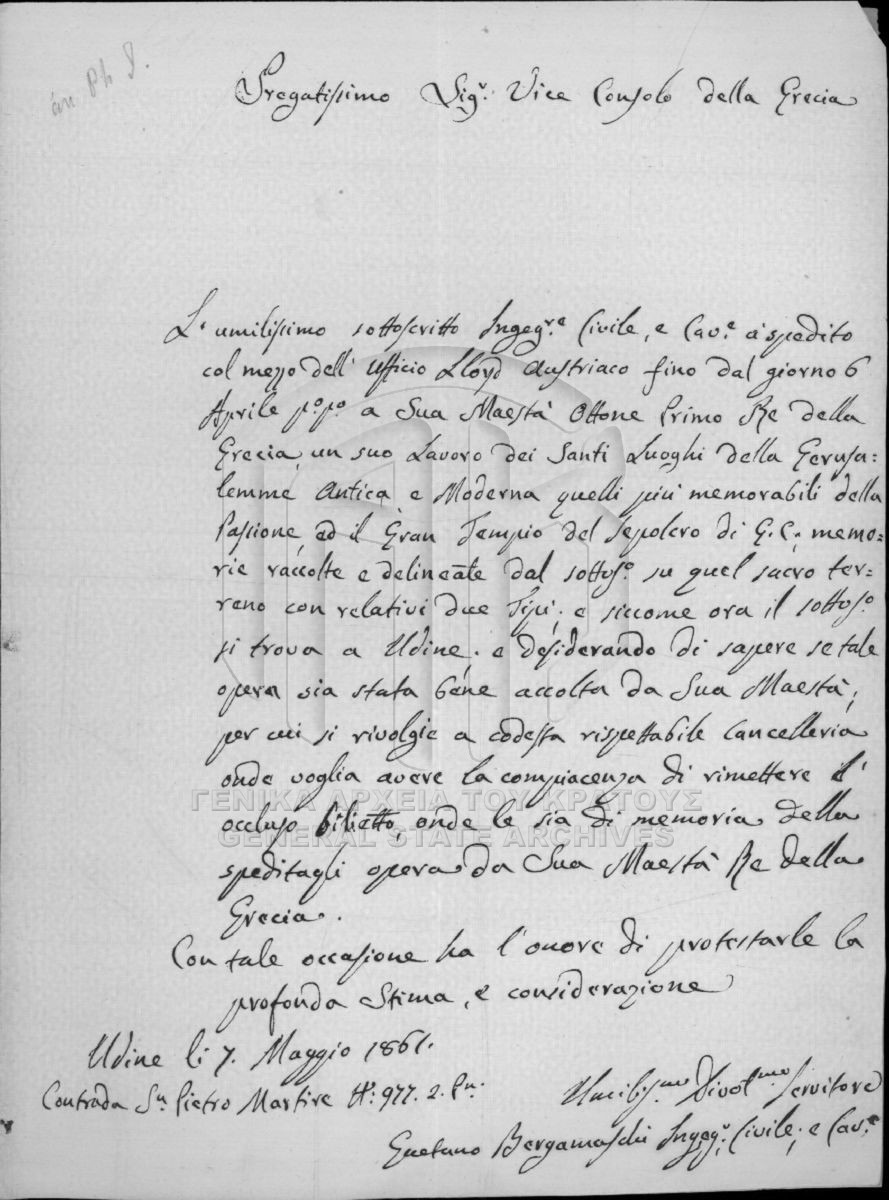 Pregatissimo Sigr. Vice Consolo della Grecia
L'umilissimo sottoscritto Ingegre. Civile, e Cave. à spedito
col mezzo dell' Ufficio Lloyd Austriaco fino dal giorno 6
Aprile po. po. a Sua Maestà Ottone Primo Re della
Grecia, un suo Lavoro dei Santi Luoghi della Gerusa=
lemme Antica e Moderna quelli più memorabili della
Passione, ed il Gran Tempio del Sepolcro di G. C; memo=
rie raccolte e delineate dal sottoso. su quel sacro ter=
reno con relativi due Tipi; e siccome ora il sottoso.
si trova a Udine; e desiderando di sapere se tale
opera sia stata bene accolta da Sua Maestà;
per cui si rivolgie a codesta rispettabile Cancelleria
onde voglia avere la compiacenza di rimettere l'
occluso bilietto, onde le sia di memoria della
speditagli opera da Sua Maestà Re della
Grecia.
Con tale occasione ha l'onore di protestarle la
profonda Stima, e considerazione
Udine li 7. Maggio 1861.
Contrada Sn. Pietro Martire No: 977. 2. Pn.
Umilissmo Divotmo Servitore
Gaetano Bergamaschi Ingegr. Civile; e Cave.
ΓΕΝΙΚΑ ΑΡΧΕΙΑ ΤΟΥ ΚΡΑΤΟΥΣ
GENERAL STATE ARCHIVES